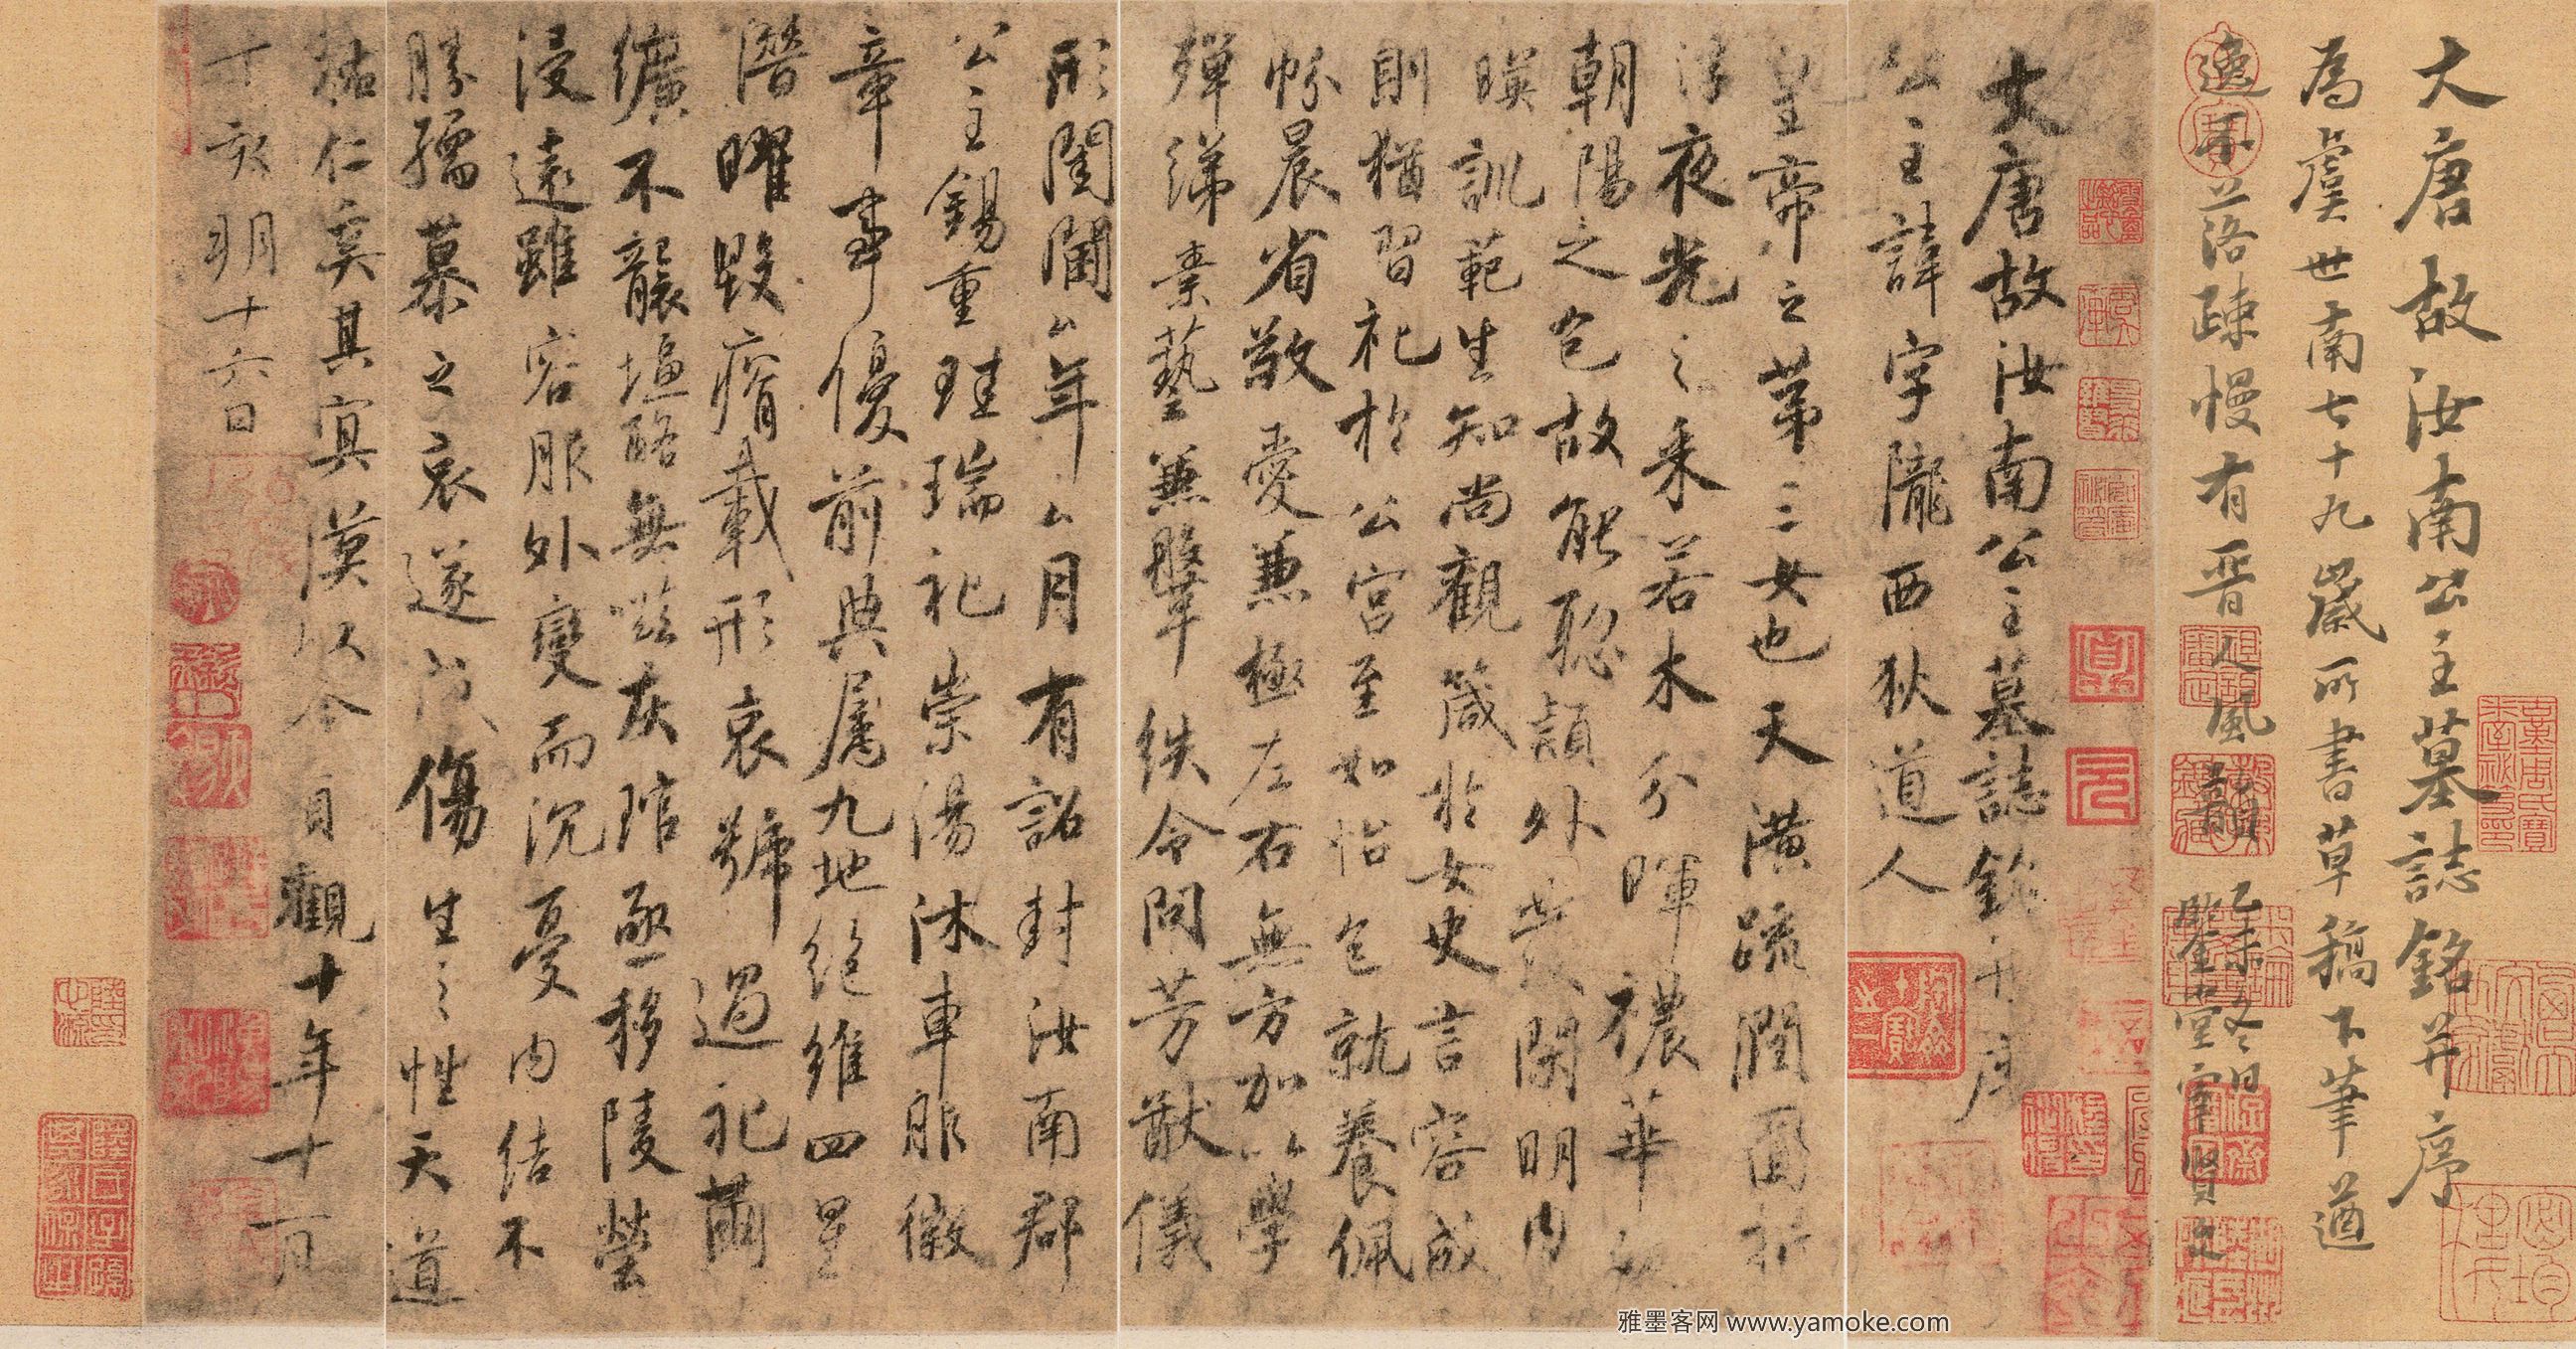 大唐故汝南公主墓誌銘并序
為虞世南七十九歲所書草稿下筆遒
逸不落疎慢有晉人風韻
乙未冬日
大唐故汝南公主墓誌銘并序
公主諱字隴西狄道人
皇帝之第三女也天潢疏潤圓折
浮夜光之采若木分暉穠華
朝陽之色故能聡穎外發閑明內
暎訓範生知尚觀箴於女史言容成
則猶習礼於公宮至如怡色就養佩
帉晨省敬愛兼極左右無方加以學
殫綈素藝兼鞶紩令問芳猷儀
形閨閫厶年厶月有詔封汝南郡
公主錫重珪瑞礼崇湯沐車服徽
章事優前典属九地絕維四星
潛曜毀瘠載形哀號過礼繭
纊不襲塩酪無嗞灰琯亟移陵塋
浸遠雖容服外變而沉憂內結不
勝孺慕之哀遂成傷生之性天道
祐仁奚其冥漠以今貞觀十年十一月
丁亥朔十六日
雅墨客网 www.yamoke.com